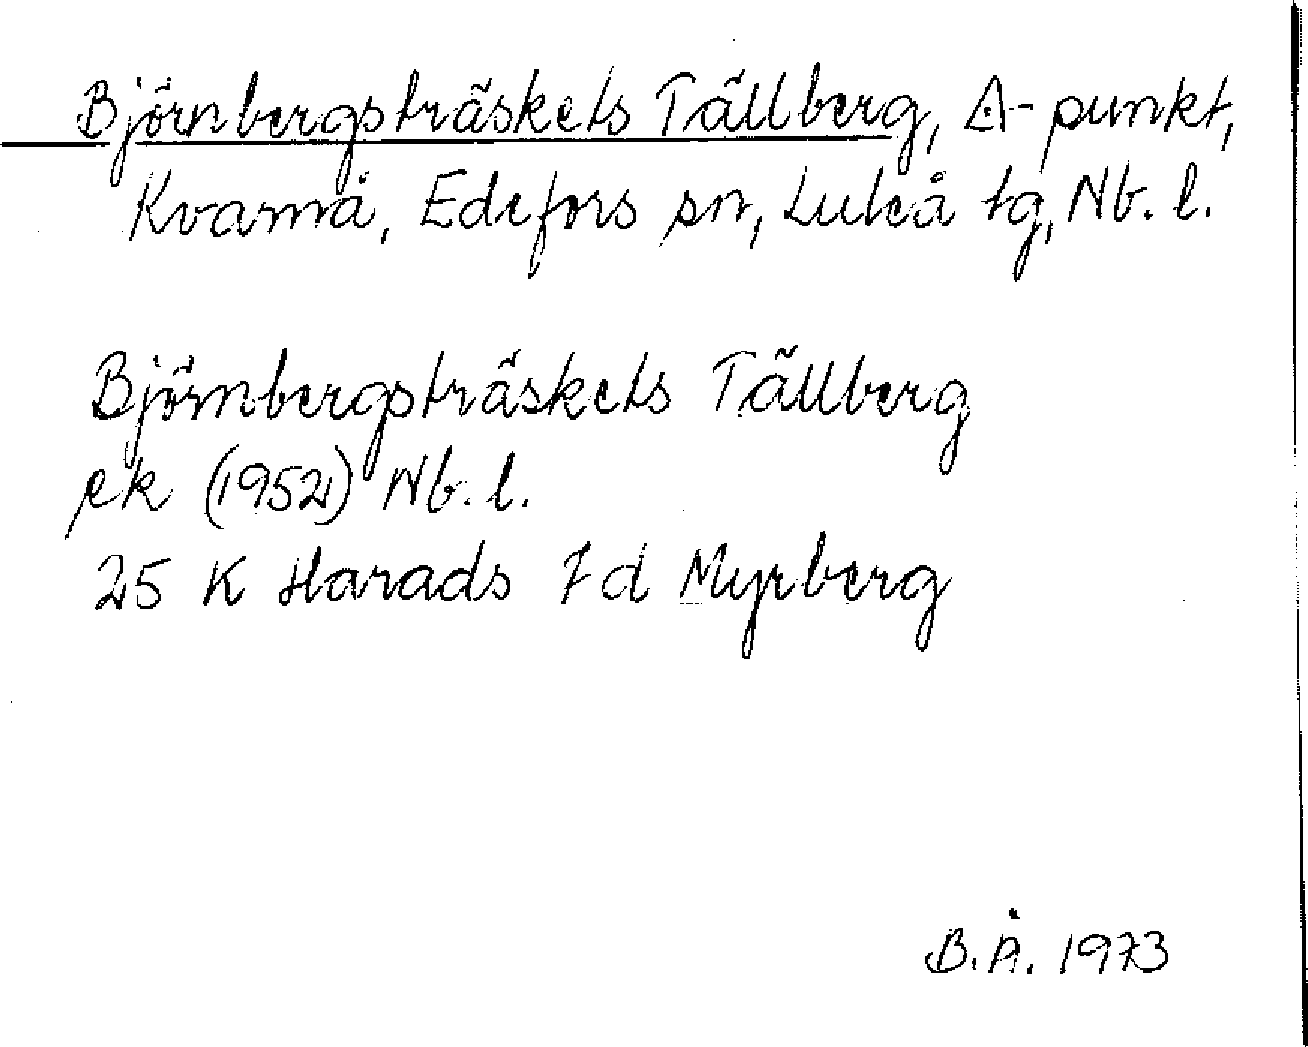 Björnbergsträskets Tällberg, △-punkt,
Kvarnå, Edefors sn, Luleå tg, Nb. l.
Björnbergsträskets Tällberg
ek (1952) Nb. l.
25 K Harads 7d Myrberg
B.Å. 1973